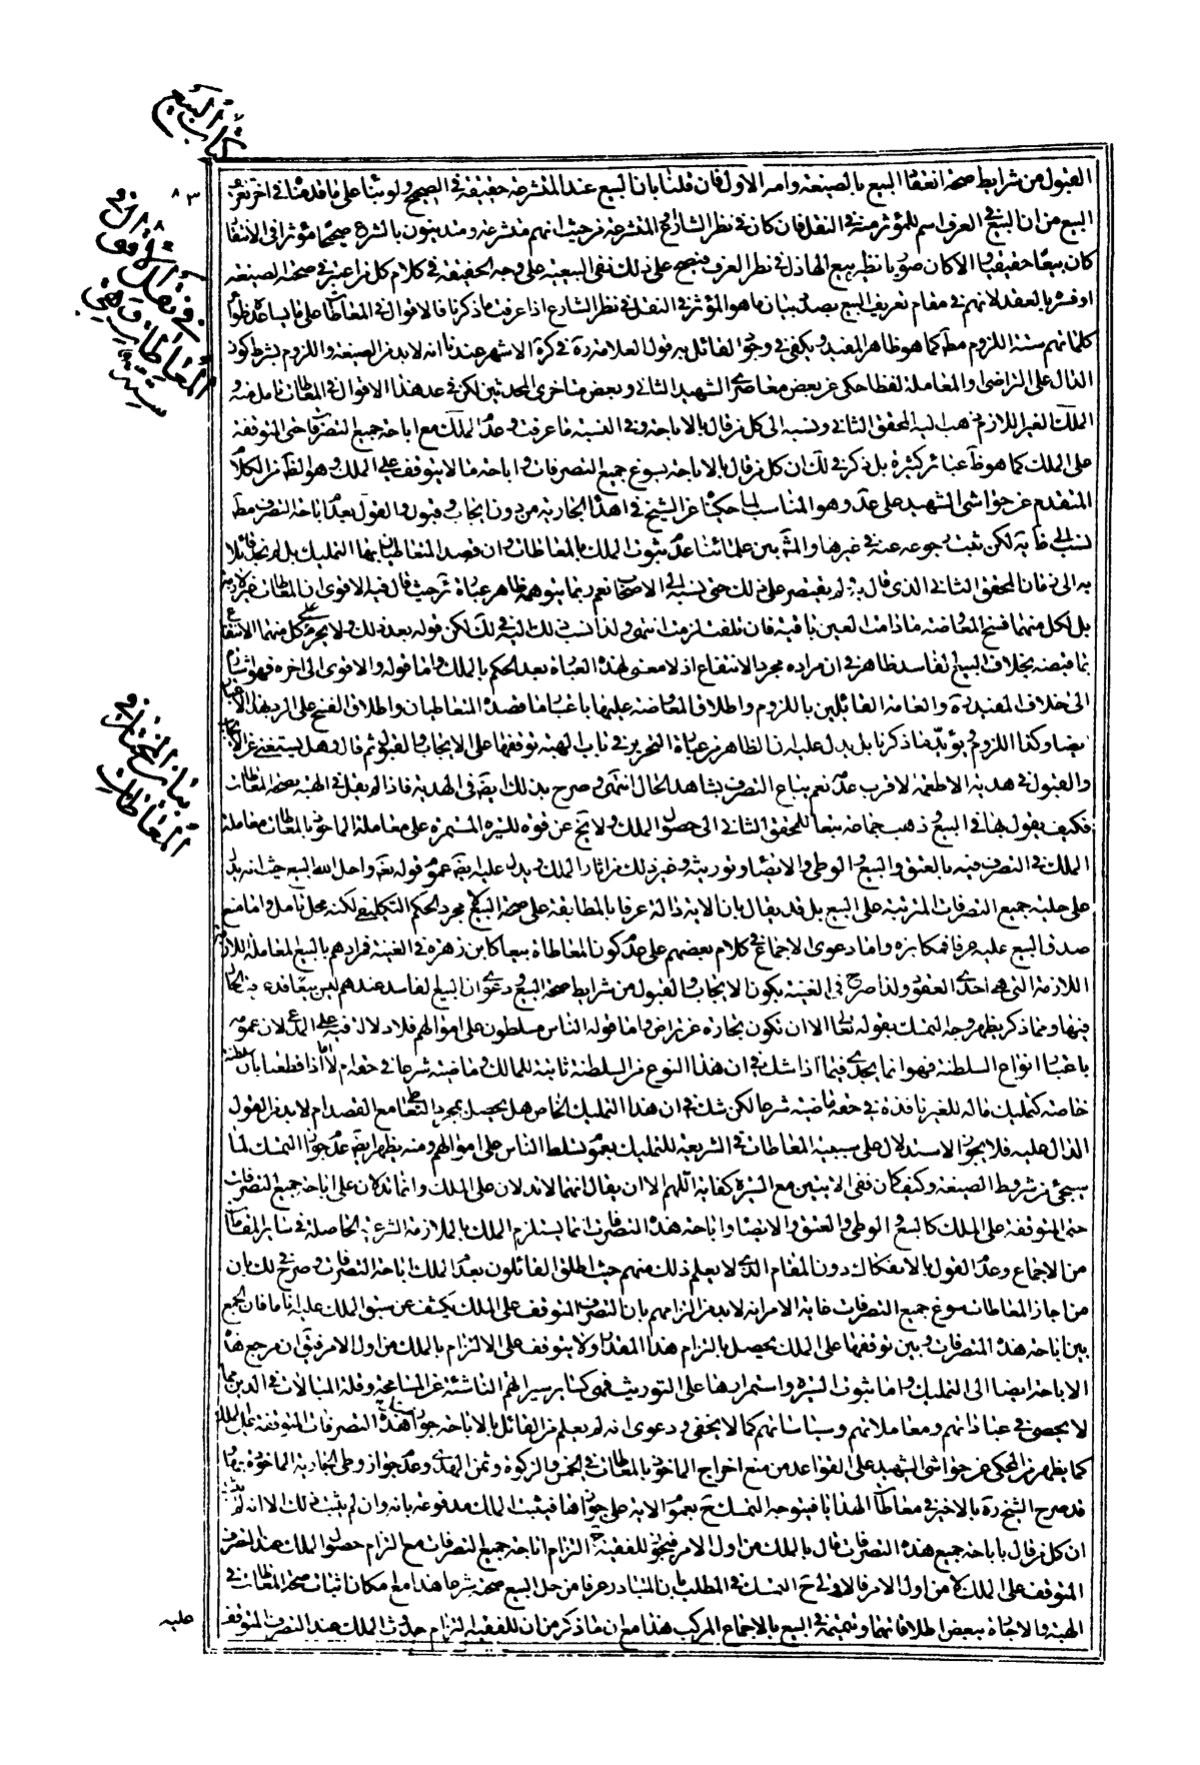 كتاب البيع
٨٣
في نقل الاقوال في المعاطات وهي ستة
القبول من شرايط صحة انعقاد البيع بالصيغة وامر الاول فان قلنا بان البيع عند المتشرعة حقيقة في الصحيح ولو بناء على ما قدمنا في اخر تعريف
البيع من ان البيع في العرف اسم للمؤثر منه في النقل فان كان في نظر الشارع او المتشرعة من حيث انهم متشرعة ومتدينون بالشرع صحيحا مؤثرا في الانتقال
كان بيعا حقيقيا والا كان صوريا نظير بيع الهازل في نظر العرف فيصح على ذلك نفي البيعية على وجه الحقيقة في كلام كل من اعتبر في صحته الصيغة
او فسره بالعقد لانهم في مقام تعريف البيع بصدد بيان ما هو المؤثر في النقل في نظر الشارع اذا عرفت ما ذكرنا فالاقوال في المعاطاة على ما يساعده ظواهر
كلماتهم ستة اللزوم مط كما هو ظاهر المفيد ويكفي في وجود القائل به قول العلامة ره في كرة الاشهر عندنا انه لا بد من الصيغة واللزوم بشرط كون
الدال على التراضي او المعاملة لفظا حكي عن بعض معاصري الشهيد الثاني وبعض متاخري المحدثين لكن في عد هذا من الاقوال في المعاطات تامل منه و
الملك الغير اللازم ذهب اليه المحقق الثاني ونسبه الى كل من قال بالاباحة وفي النسبة ما عرفت وعدم الملك مع اباحة جميع التصرفات حتى المتوقفة
على الملك كما هو ظ عبائر كثيرة بل ذكر في لك ان كل من قال بالاباحة يسوغ جميع التصرفات واباحة ما لا يتوقف على الملك وهو الظ من الكلام
المتقدم عن حواشي الشهيد على عد وهو المناسب لما حكيناه عن الشيخ في اهداء الجارية من دون ايجاب وقبول والقول بعدم اباحة التصرف مط
نسب الى ظ ية لكن ثبت رجوعه عنه في غيرها والمش بين علمائنا عدم ثبوت الملك بالمعاطات وان قصد المتعاطيان بها التمليك بل لم نجد قائلا
به الى زمان المحقق الثاني الذي قال به ولم يقتصر على ذلك حتى نسبه الى الاصحاب نعم ربما يتوهم من ظاهر عبارة ير حيث قال فيه الاقوى ان المعاطات غير لازمة
بل لكل منهما فسخ المعاوضة ما دامت العين باقية فان تلفت لزمت انتهى ولذا نسب ذلك اليه في لك لكن قوله بعد ذلك ولا يحرم على كل منهما الانتفاع
بما قبضه بخلاف البيع الفاسد ظاهر في ان مراده مجرد الانتفاع اذ لا معنى لهذه العبارة بعد الحكم بالملك واما قوله والاقوى الى اخره فهو اشارة
الى خلاف المفيد ره والعامة القائلين باللزوم واطلاق المعاوضة عليها باعتبار ما قصده المتعاطيان واطلاق الفسخ على الرد بهذا الاعتبار
ايضا وكذا اللزوم ويؤيد ما ذكرنا بل يدل عليه ان الظاهر من عبارة التحرير في باب الهبة توقفها على الايجاب والقبول ثم قال وهل يستغني عن الايجاب
والقبول في هدية الاطعمة الاقرب عدمه نعم يباح التصرف بشاهد الحال انتهى وصرح بذلك ايضا في الهدية فاذا لم يقل في الهبة بصحة المعاطات
فكيف يقول بها في البيع وذهب جماعة تبعا للمحقق الثاني الى حصول الملك ولا يخ عن قوة للسيرة المستمرة على معاملة الماخوذ بالمعاطات معاملة
الملك في التصرف فيه بالعتق والبيع والوطي والايصاء وتوريثه وغير ذلك من اثار الملك ويدل عليه ايضا عموم قوله تعه واحل الله البيع حيث انه يدل
على حلية جميع التصرفات المترتبة على البيع بل قد يقال بان الاية دالة عرفا بالمطابقة على صحة البيع لا مجرد الحكم التكليفي لكنه محل تامل واما منع
صدق البيع عليه عرفا فمكابرة واما دعوى الاجماع في كلام بعضهم على عدم كون المعاطاة بيعا كابن زهرة في الغنية فمرادهم بالبيع المعاملة اللازمة
اللازمة التي هي احدى العقود ولذا صرح في الغنية بكون الايجاب والقبول من شرايط صحة البيع ودعوى ان البيع الفاسد عندهم ليس بيعا قد عرفت الحال
فيها ومما ذكر يظهر وجه التمسك بقوله تعالى الا ان تكون تجارة عن تراض واما قوله الناس مسلطون على اموالهم فلا دلالة فيه على المدعى لان عمومه
باعتبار انواع السلطنة فهو انما يجدي فيما اذا شك في ان هذا النوع من السلطنة ثابتة للمالك وماضية شرعا في حقه ام لا اما اذا قطعنا بان سلطنة
خاصة كتمليك ماله للغير نافذة في حقه ماضية شرعا لكن شك في ان هذا التمليك الخاص هل يحصل بمجرد التعاطي مع القصد ام لا بد من القول
الدال عليه فلا يجوز الاستدلال على سببية المعاطات في الشريعة للتمليك بعموم تسلط الناس على اموالهم ومنه يظهر ايضا عدم جواز التمسك لما
سيجيء من شروط الصيغة وكيف كان ففي الايتين مع السيرة كفاية اللهم الا ان يقال انهما لا تدلان على الملك وانما تدلان على اباحة جميع التصرفات
حتى المتوقفة على الملك كالبيع والوطي والعتق والايصاء واباحة هذه التصرفات انما يستلزم الملك بالملازمة الشرعية الحاصلة في سائر المقامات
من الاجماع وعدم القول بالانفكاك دون المقام الذي لا يعلم ذلك منهم حيث اطلق القائلون بعدم الملك اباحة التصرفات وصرح في لك بان
من اجاز المعاطات سوغ جميع التصرفات غاية الامر انه لا بد من التزامهم بان التصرف المتوقف على الملك يكشف عن سبق الملك عليه انا ما فان الجمع
بين اباحة هذه التصرفات وبين توقفها على الملك يحصل بالتزام هذا المقدار ولا يتوقف على الالتزام بالملك من اول الامر فيقى ان مرجع هذه
الاباحة ايضا الى التمليك واما ثبوت السيرة واستمرارها على التوريث فهي كسائر سيراتهم الناشئة عن المسامحة وقلة المبالات في الدين مما
لا يحصى في عباداتهم ومعاملاتهم وسياساتهم كما لا يخفى ودعوى انه لم يعلم من القائل بالاباحة جواز مثل هذه التصرفات المتوقفة على الملك
كما يظهر من المحكي عن حواشي الشهيد على القواعد من منع اخراج الماخوذ بالمعاطات في الخمس والزكوة وثمن الهدي وعدم جواز وطي الجارية الماخوذة بها و
قد صرح الشيخ ره بالاخير في معاطاة الهدايا فيتوجه التمسك ح بعموم الاية على جوازها فيثبت الملك مدفوعة بانه وان لم يثبت ذلك الا انه لم يثبت
ان كل من قال باباحة جميع هذه التصرفات قال بالملك من اول الامر فيجوز للفقيه ح التزام اباحة جميع التصرفات مع التزام حصول الملك عند التصرف
المتوقف على الملك لا من اول الامر فالاولى ح التمسك في المطلب بان المتبادر عرفا من حل البيع صحته شرعا هذا مع امكان اثبات صحة المعاطات في
الهبة والاجارة ببعض اطلاقاتهما وتتميمه في البيع بالاجماع المركب هذا مع ان ما ذكر من ان للفقيه التزام حدوث الملك عند التصرف المتوقف
عليه
بيان المختار في المعاطات